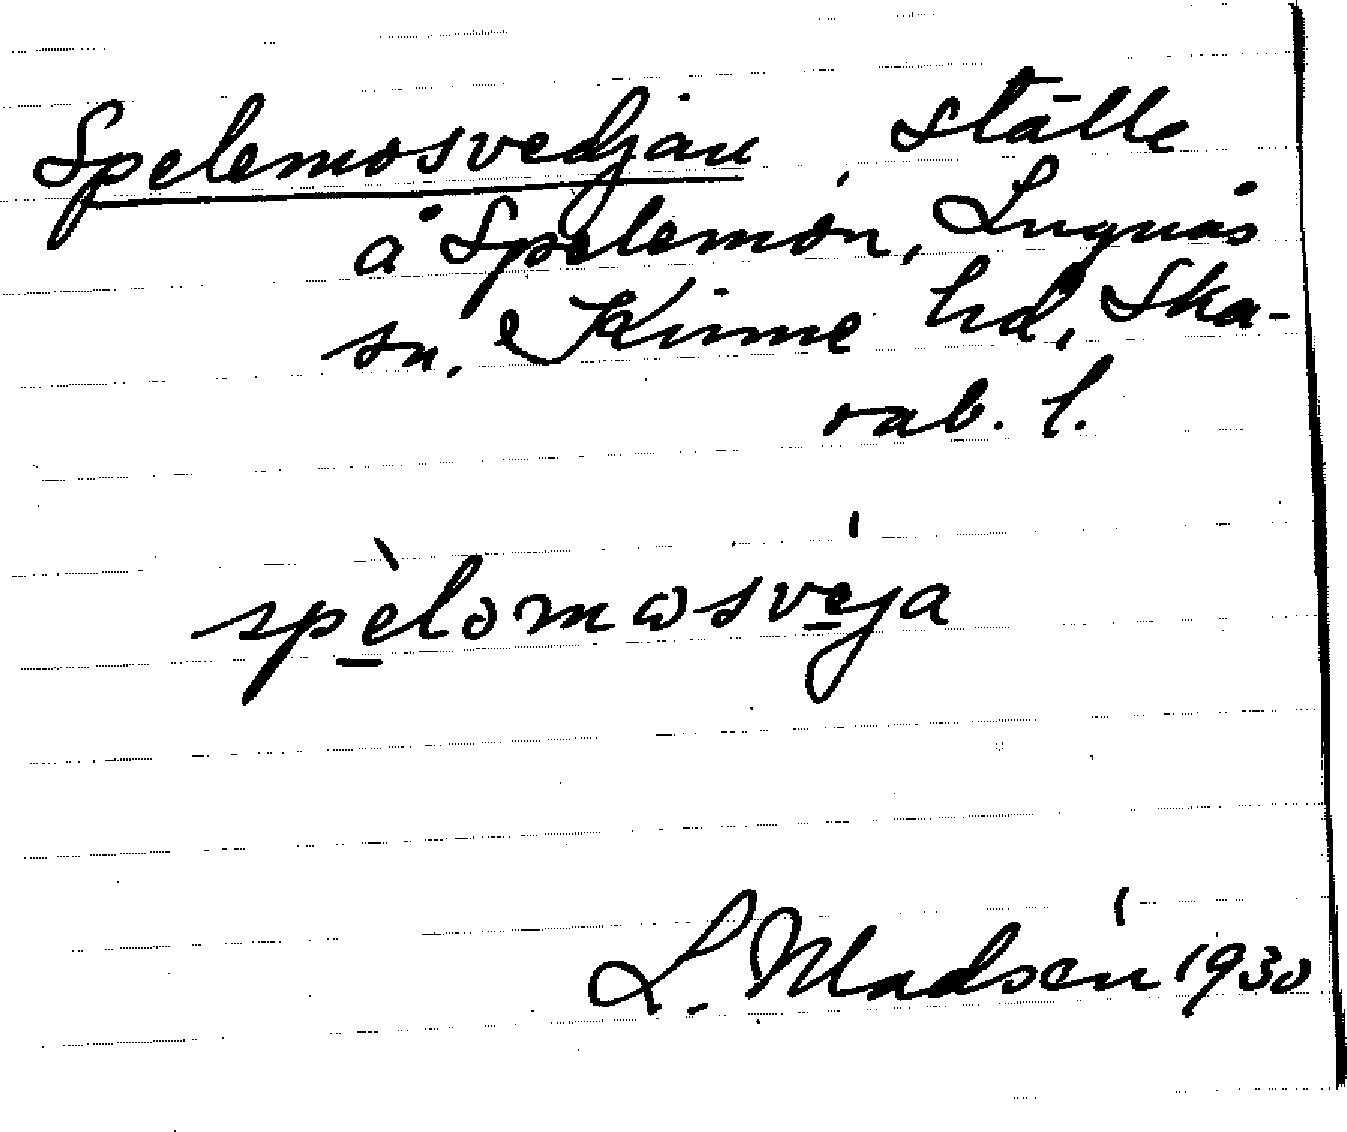 Spelemosvedjan, ställe
å Spelemon, Lugnås
sn. Kinne hd, Ska-
rab. l.
spèlomωsvéja
L. Madsén 1930